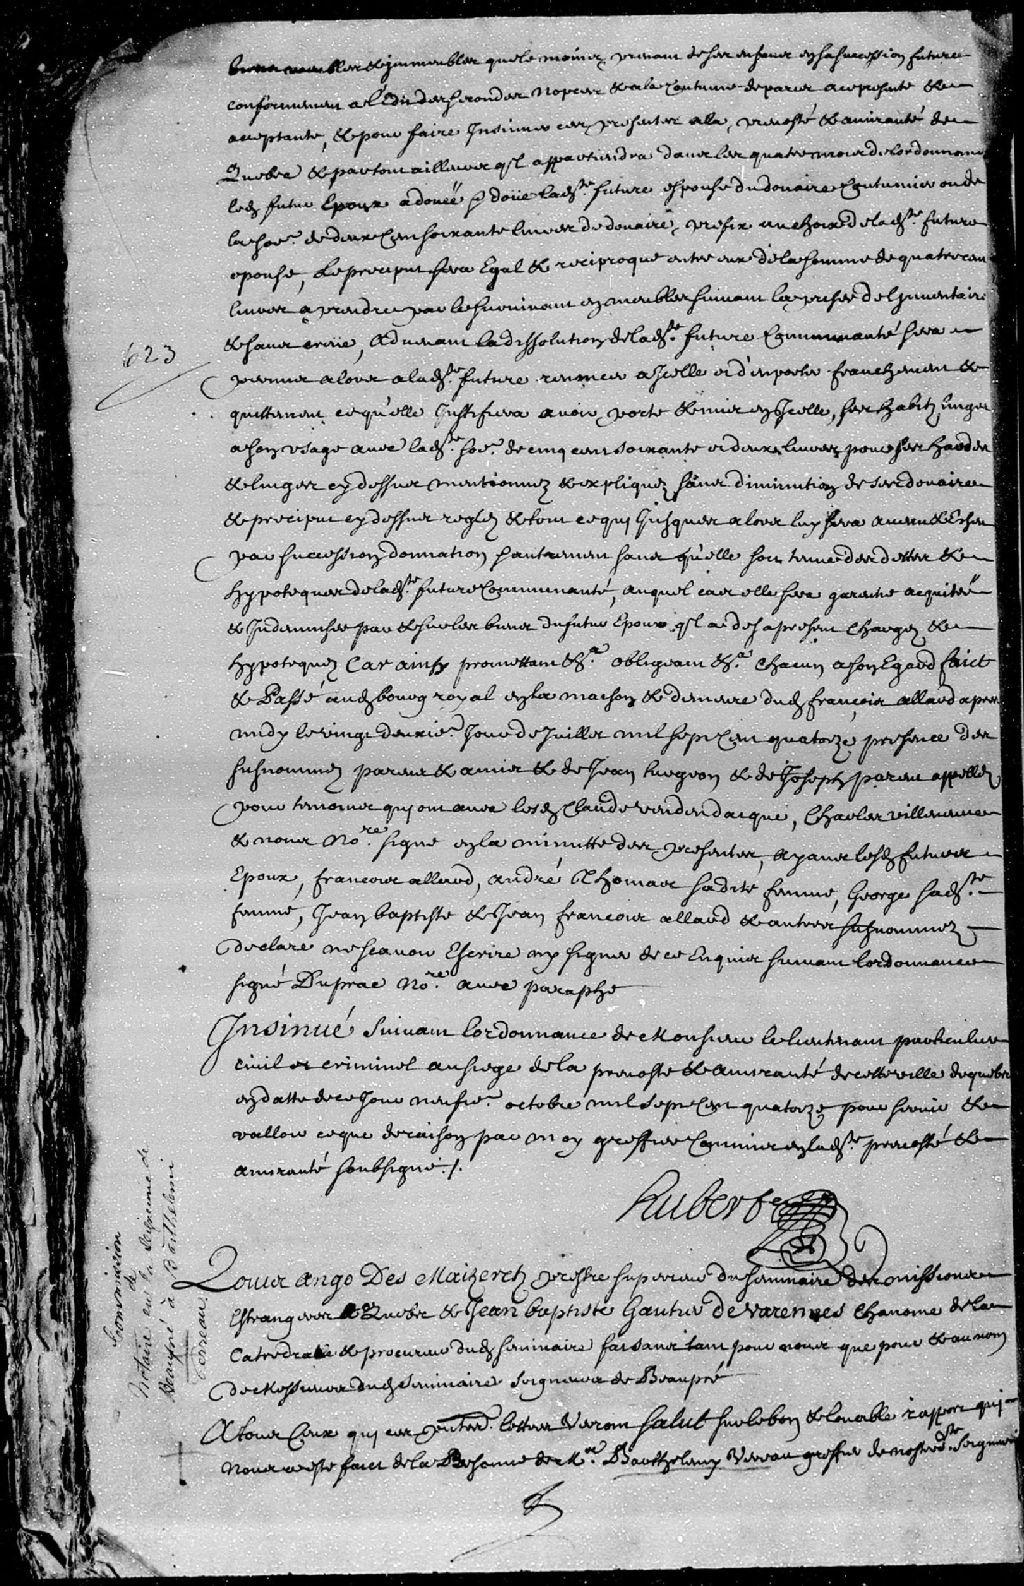 biens meubles & jmmeubles que le moins prenant de ses enfans en sa succession future
conformement a lEdit des secondes Nopces & a la Coutume de paris ace presente & ce
acceptante, & pour faire Insinuer ces presentes a la prevosté & amirauté de
Quebec & partout ailleurs qsl appartiendra dans les quatre mois de lordonnance
led. futur Epoux a doüé & doüe lad.te future Espouse du douaire Coutumier ou de
la so.e de deux Cens soixante livres de douaire prefix au choix de lad.te future
epouse, Le preciput sera Egal & reciproque entre eux de la somme de quatre cens
livres a prendre par le survivant en meubles suivant la prisée de lJnventaire
& sans criée, Advenant la dissolution de lad.te future Communauté sera
permis alors a lad.te future renoncer a Jcelle et demporter franchement &
quittement ce qu'elle Justifiera avoir porté & mis en Jcelle, ses habits linges
a son usage avec lad.te so.e de cinq cens soixante et deux livres pour ses hardes
& linges cy dessus mentionnez & expliquez sans diminution de ses douaire
& preciput cy dessus reglez & tout ce quj Jusques alors luy sera avenu & Eschu
par succession donnation & autrement sans qu'elle soit tenue des dettes &
hypoteques de lad.te future Communauté, auquel cas elle sera garantie acquitée
& Indemnisée par & sur les biens du futur Epoux qsl a des a present chargez &
hypotequez Car ainsy promettant &.a obligeant &.a Chacun a son Egard faict
& Passé aud. bourg royal en la maison & demeure dud. françois allard apres
midy le vingt deuxie. Jour de Juillet mil sept Cens quatorze presence des
susnommez parens & amis & de Jean turgeon & de Joseph parent appellez
pour temoins quj ont avec lesd. Claude vandandaique, Charles villeneuve
& nous No.re signé en la minutte des presentes, ayans lesd. futurs
Epoux, francois allard, andré & thomas sa dite femme, George sad.te
femme, Jean baptiste & Jean francois allard & autres susnommez
declaré ne scavoir Escrire ny signer de ce Enquis suivant lordonnance
signé Duprac No.re avec paraphe
623
Insinué suivant lordonnance de Monsieur le lieutenant particulier
civil et criminel au siege de la prevosté & amirauté de cette ville de quebec
en datte de ce Jour neufie. octobre mil Sept Cens quatorze pour servir &
valloir ce que de raison par moy greffier Commis en lad.te prevosté &
amirauté soubsigné ./.
Rubert
Commission
de
Notaire en la Seigneurie de
Beaupré à Barthelemi
Verreau
Louis ango Des Maizerets prestre superieur du seminaire des missions
Estrangeres de Quebec & Jean baptiste Gautier de Varennes Chanoine de la
Catedralle & procureur dud. seminaire faisans tant pour nous que pour & au nom
de Messieurs dud. seminaire seigneurs de Beaupré
A tous Ceux quj ces p.ntes lettres Verront Salut sur le bon & louable rapport quj
Nous a esté faict de la Personne de M.e Barthelemy Vereau greffier de nostred.te Seigneurie